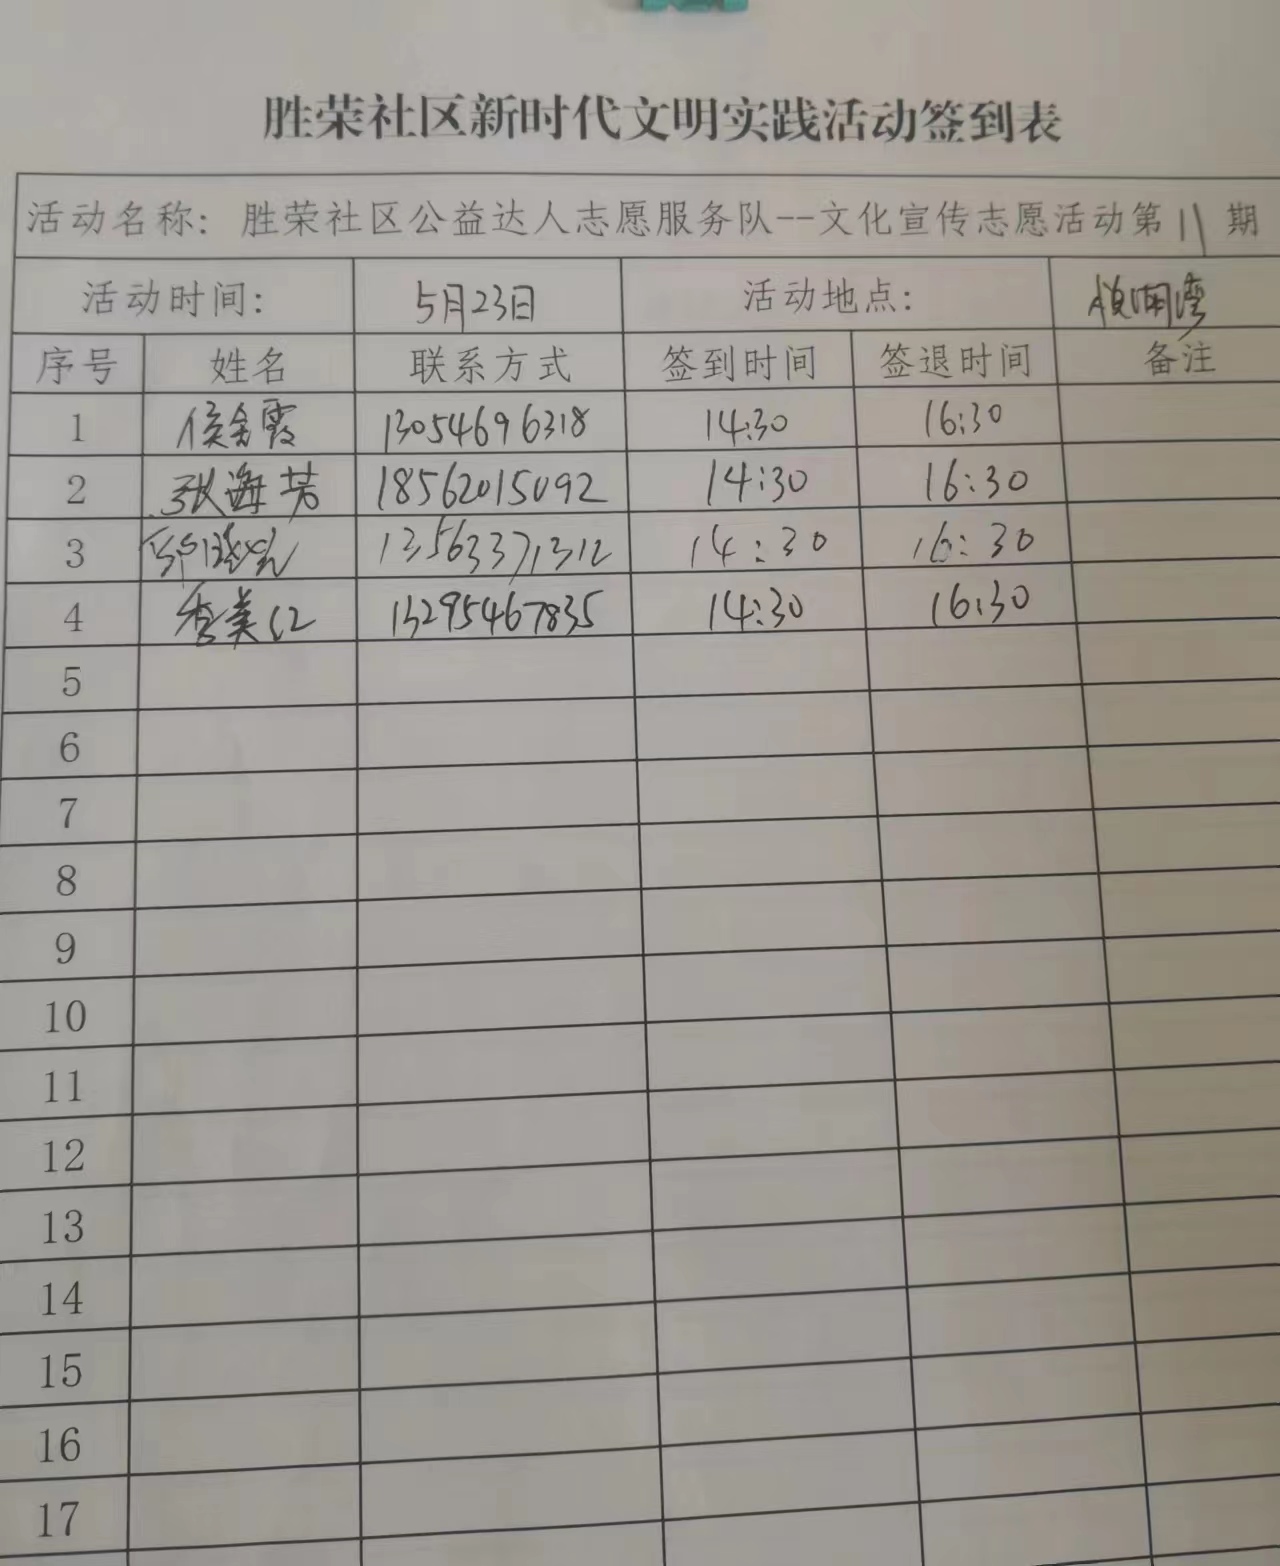 胜荣社区新时代文明实践活动签到表
活动名称：胜荣社区公益达人志愿服务队--文化宣传志愿活动第11期
活动时间： 5月23日 活动地点： 湾
序号 姓名 联系方式 签到时间 签退时间 备注
1 侯金霞 13054696318 14:30 16:30
2 张海芳 18562015092 14:30 16:30
3 13563371312 14:30 16:30
4 李美红 13295467835 14:30 16:30
5
6
7
8
9
10
11
12
13
14
15
16
17